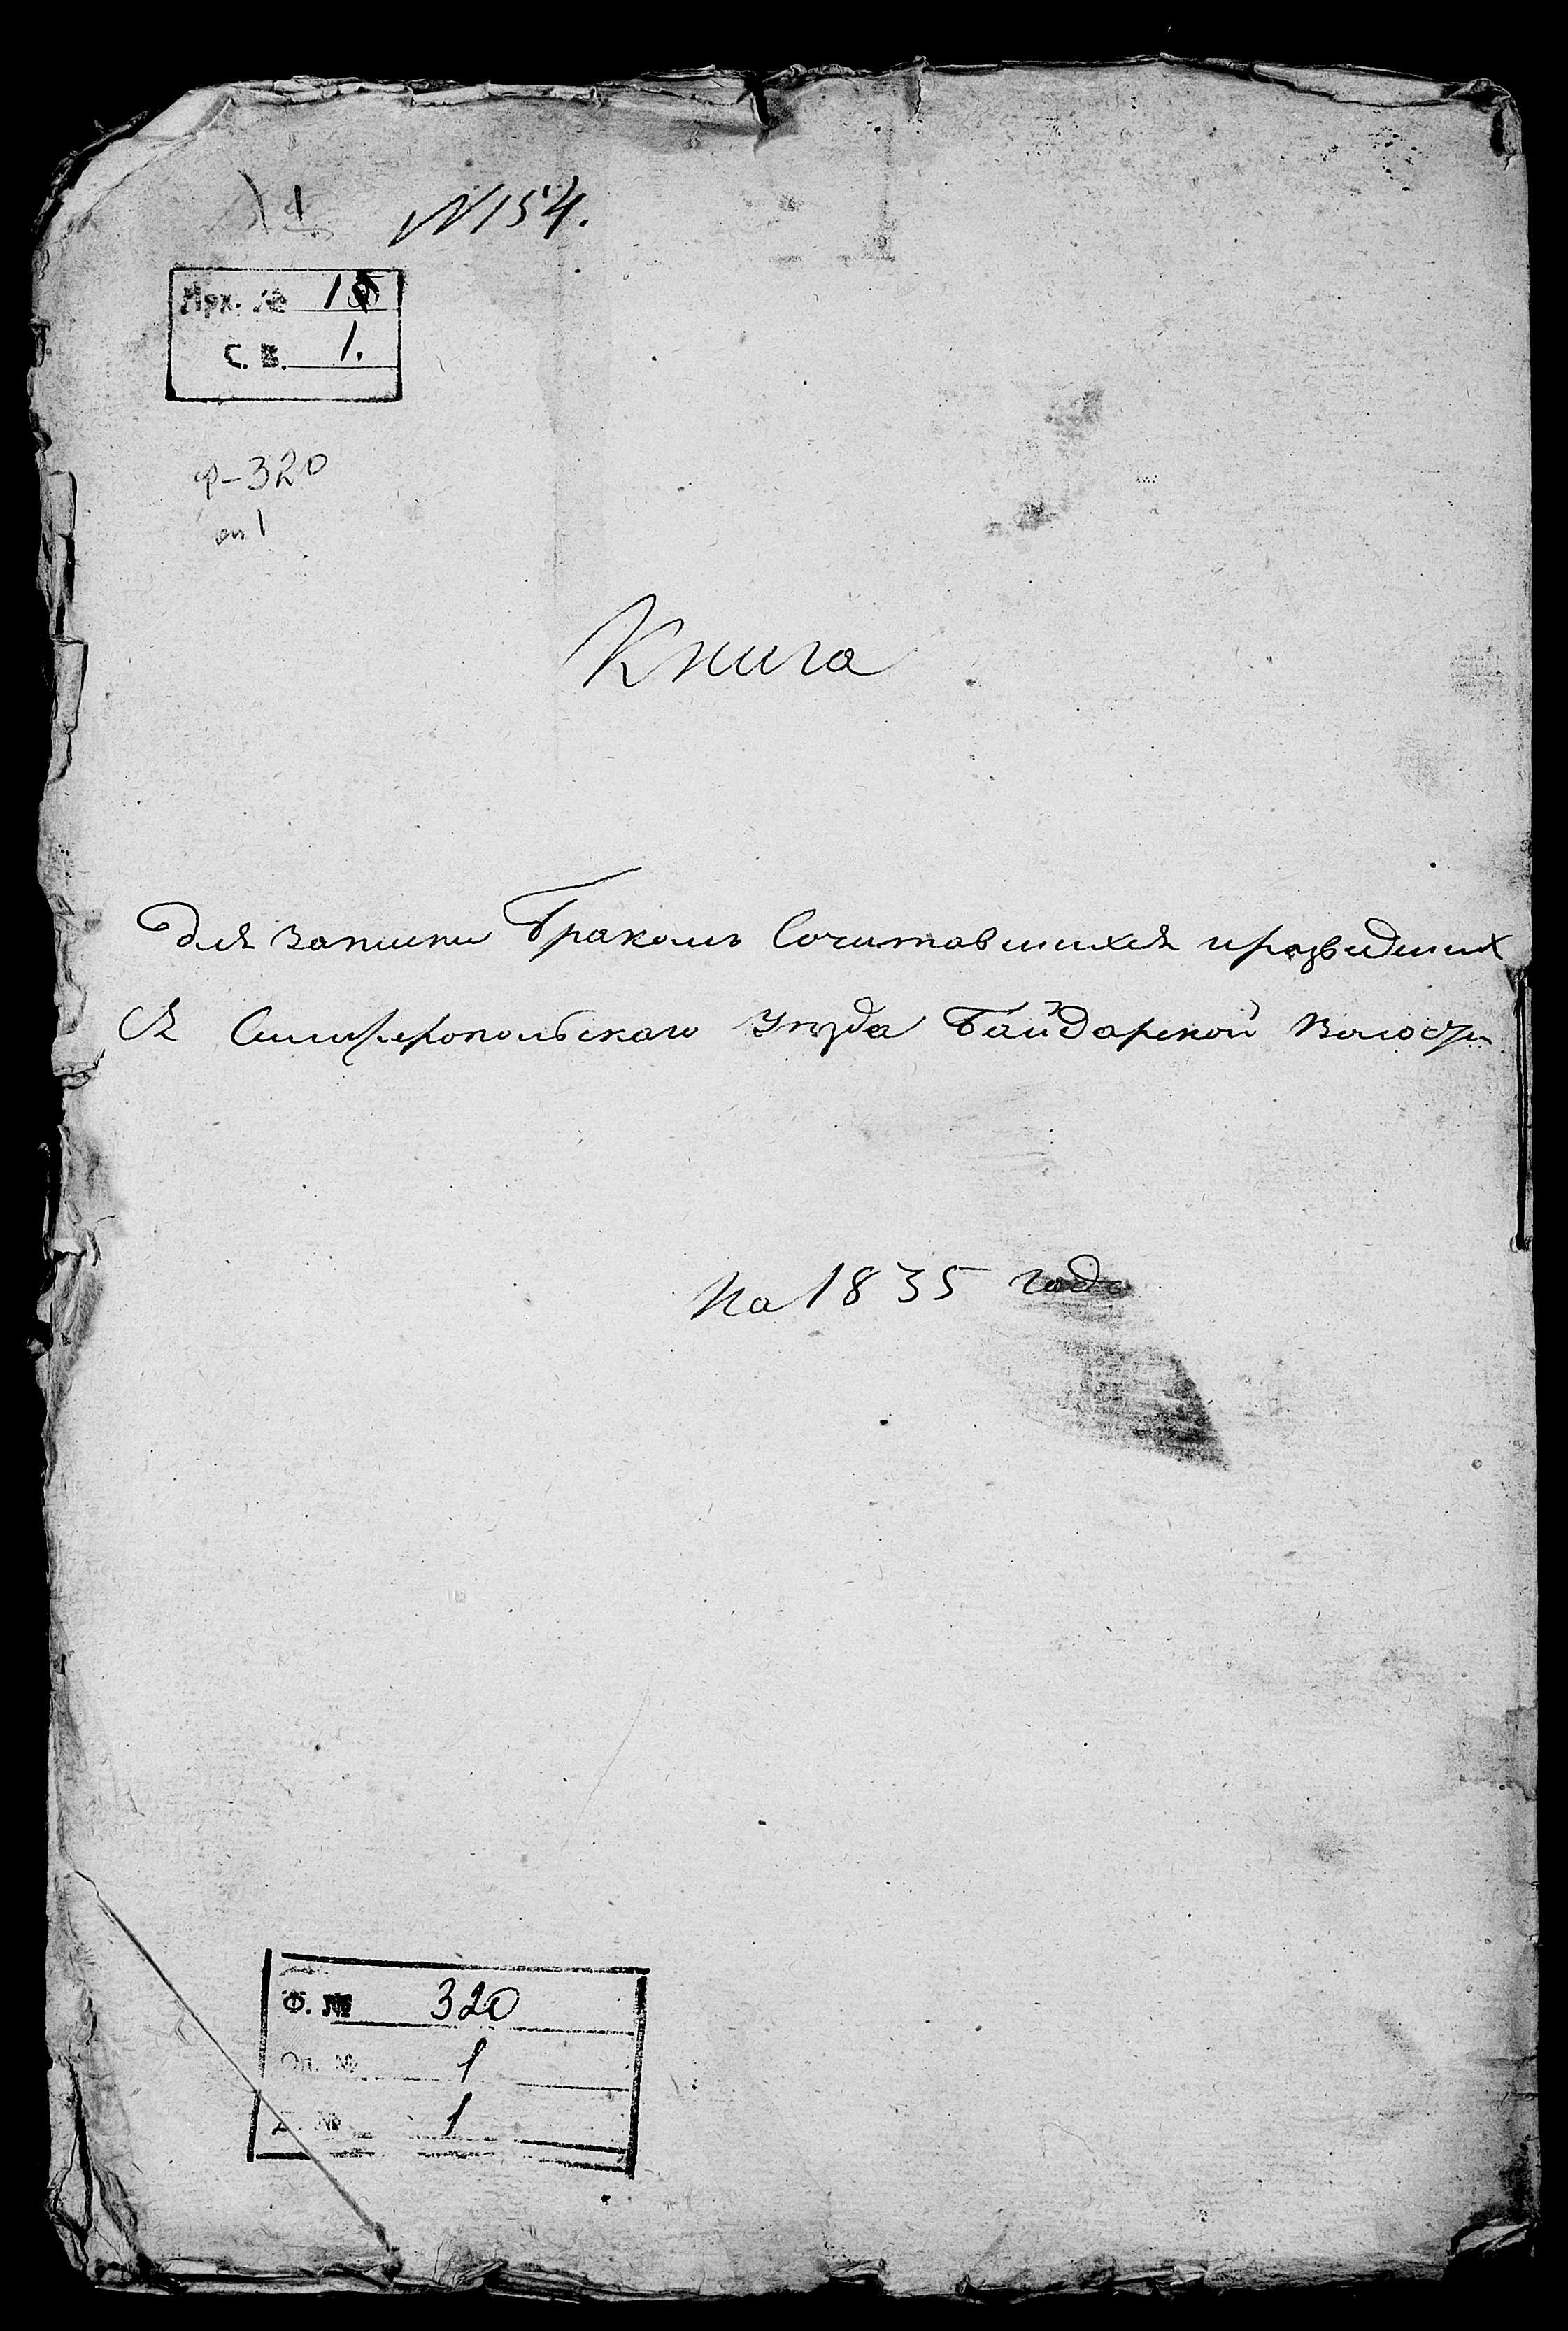 N 154.
Арх. № 1
С. В. 1.
Ф-320
оп 1
Книга
для записки Бракомъ Сочитавшихся и розведших
ся Симферопольскаго уѣзда Байдарской Волости
На 1835 годъ
Ф. № 320
Оп. № 1
Д. № 1